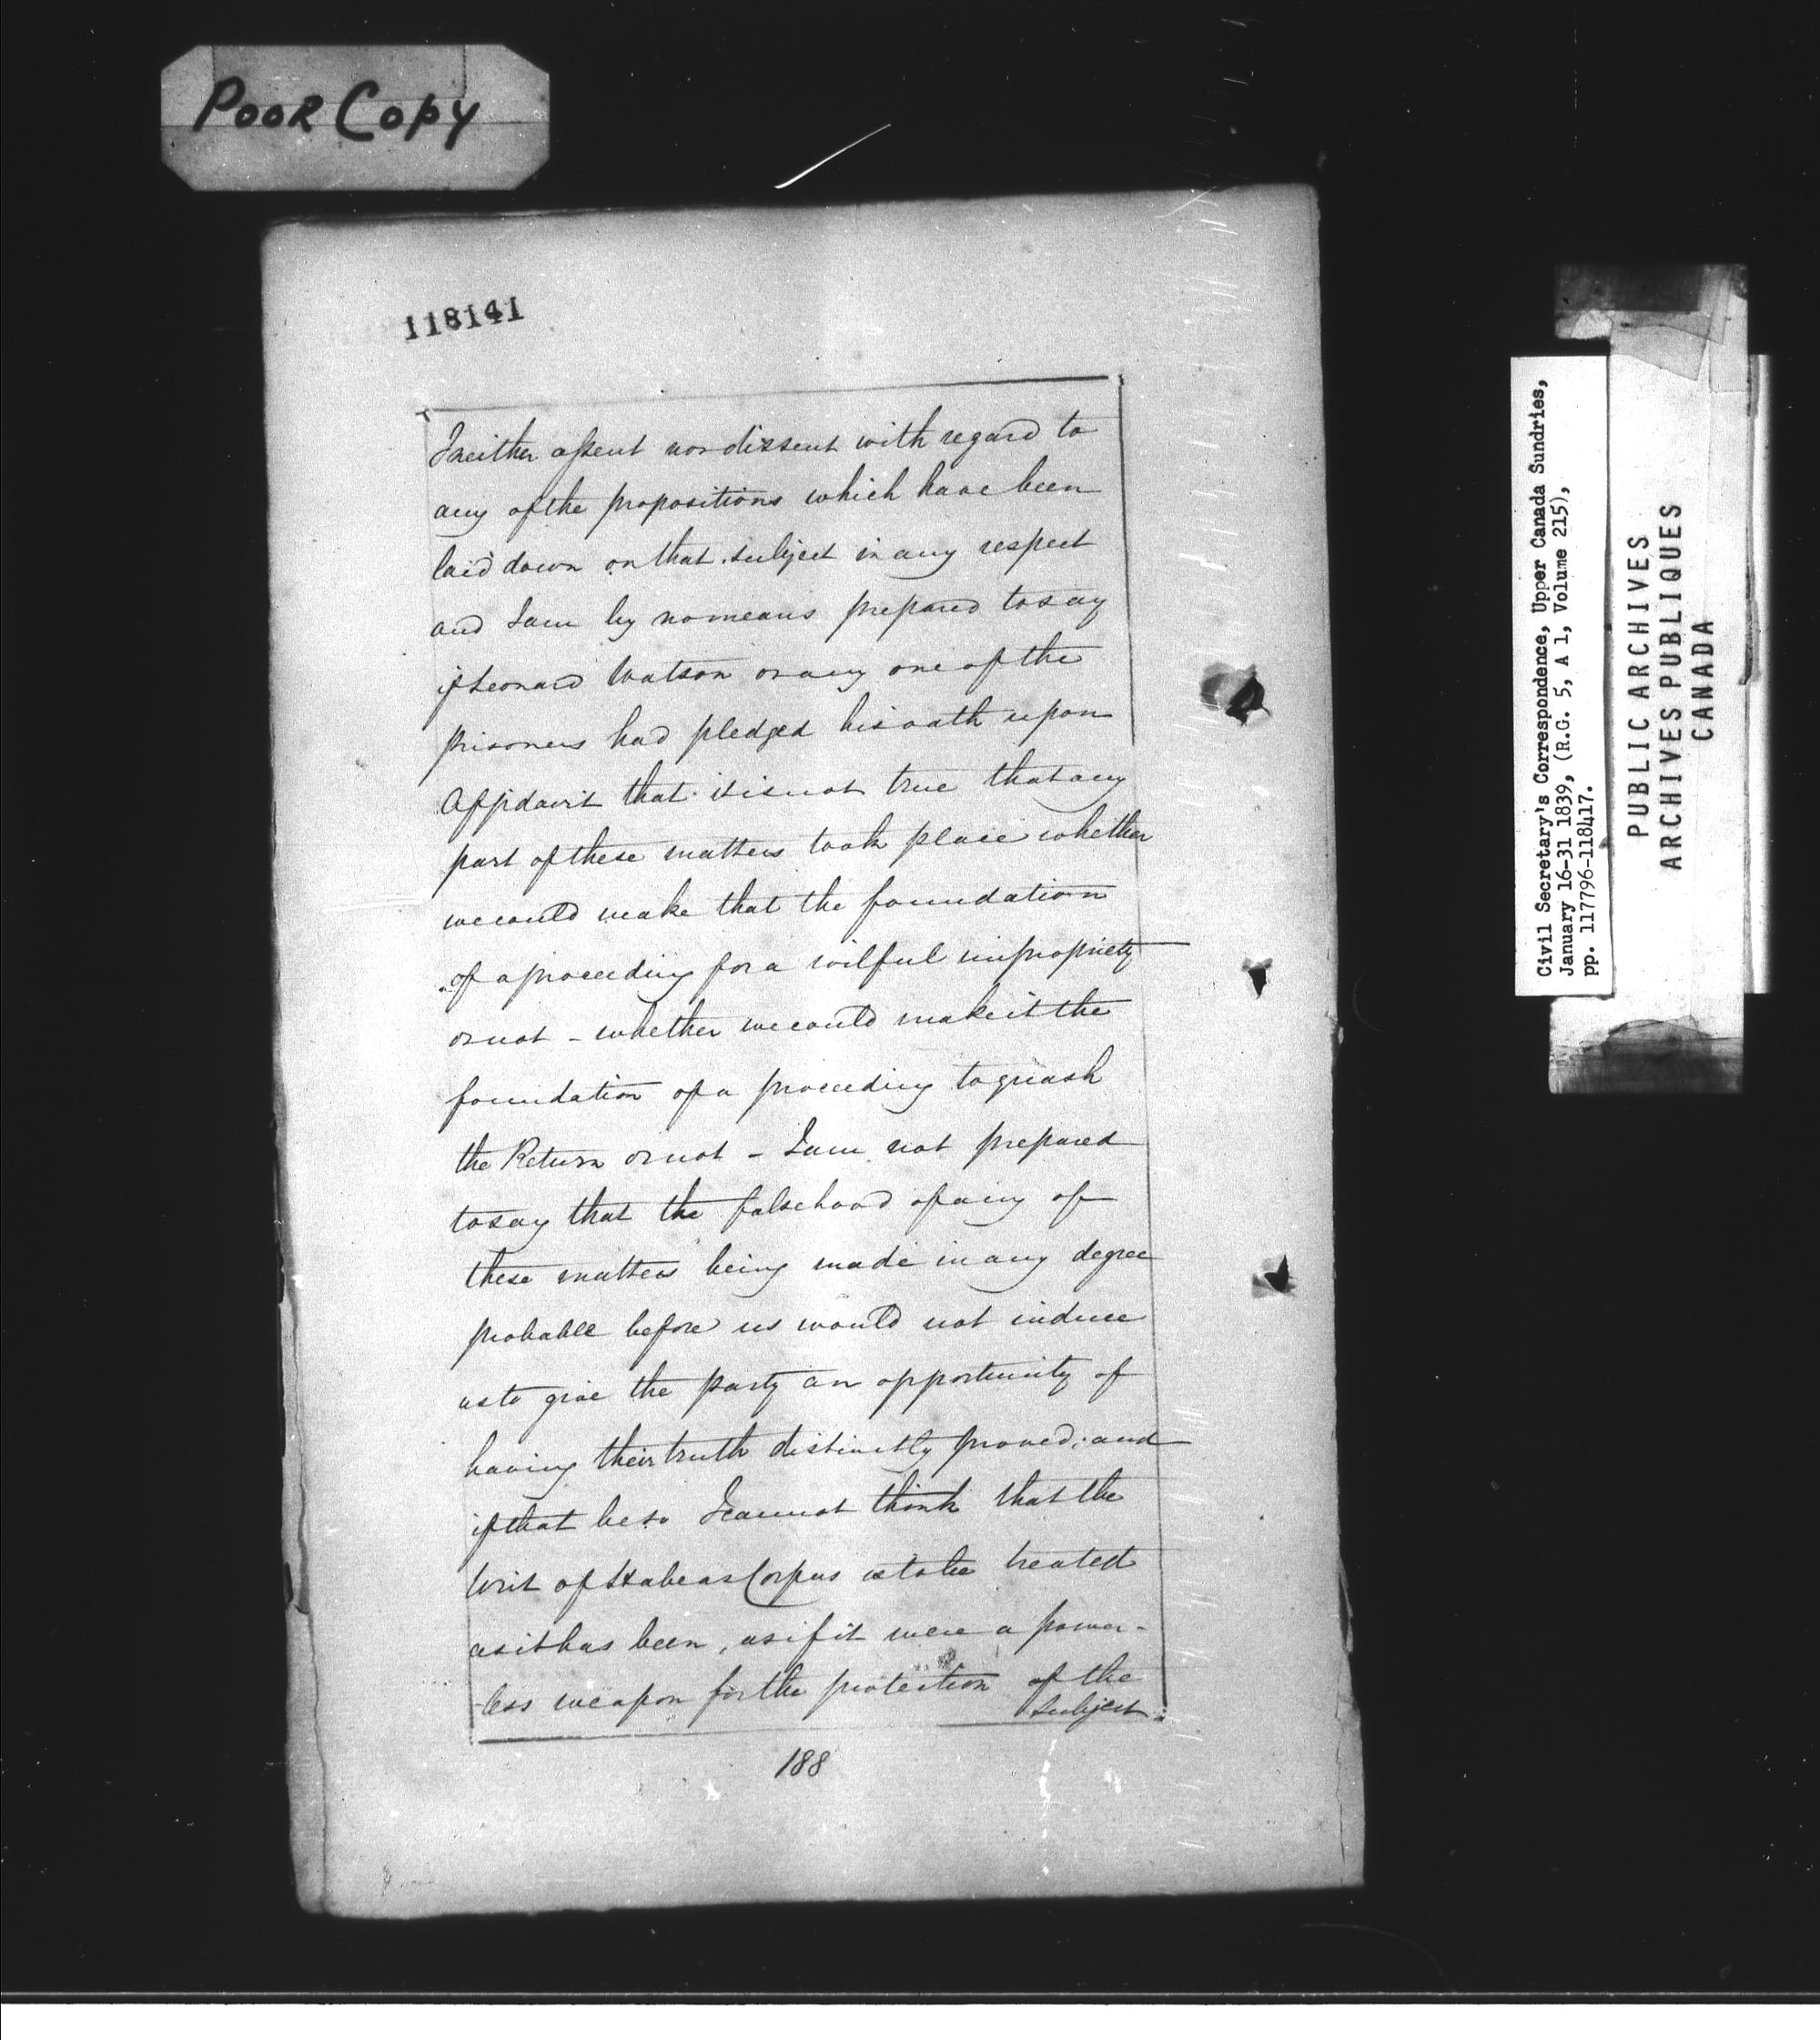 Poor Copy
118141
I neither assent nor dissent with regard to
any of the propositions which have been
laid down on that subject in any respect
and I am by no means prepared to say
if Leonard Watson or any one of the
prisoners had pledged his oath upon
Affidavit that it is not true that any
part of these matters took place whether
we could make that the foundation
of a proceeding for a wilful impropriety
or not - whether we could make it the
foundation of a proceeding to quash
the Return or not - I am not prepared
to say that the falsehood of any of
these matters being made in any degree
probable before us would not induce
us to give the party an opportunity of
having their truth distinctly proved; and
if that be so I cannot think that the
Writ of Habeas Corpus is to be treated
as it has been, as if it were a power-
-less weapon for the protection of the
Subject
188
Civil Secretary's Correspondence, Upper Canada Sundries,
January 16-31 1839, (R.G. 5, A 1, Volume 215),
pp. 117796-118417.
PUBLIC ARCHIVES
ARCHIVES PUBLIQUES
CANADA